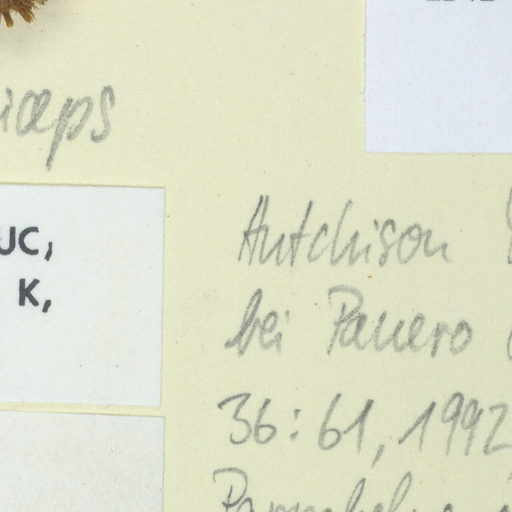 iceps
UC,
K,
Hutchison
bei Panero
36:61, 1992